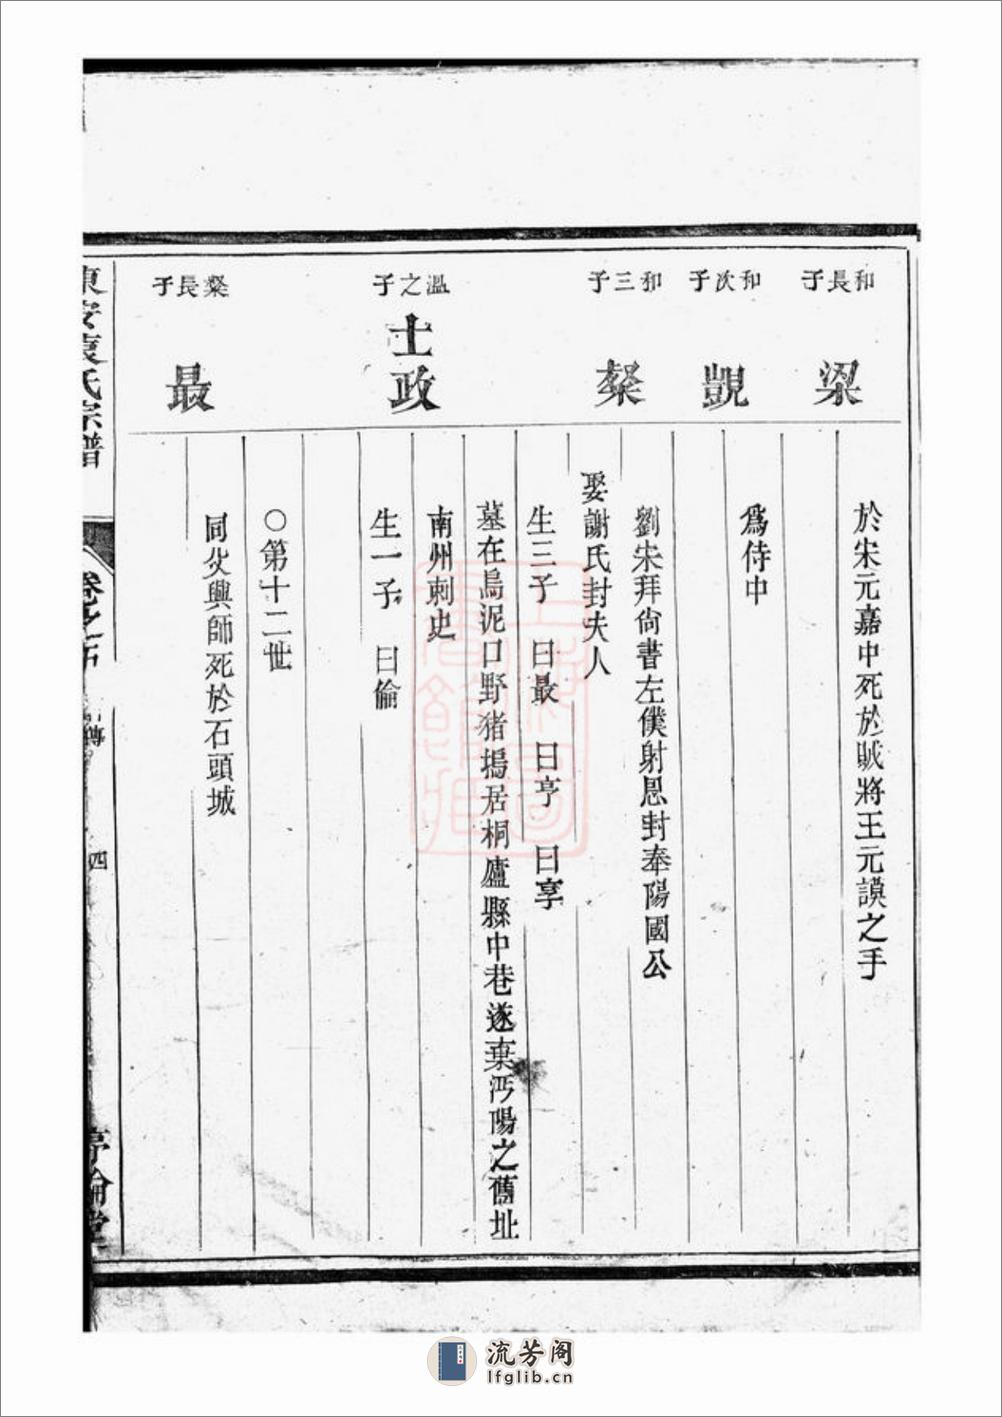 和長子
梁
於宋元嘉中死於賊將王元謨之手
和次子
覬
爲侍中
和三子
粲
劉宋拜尙書左僕射恩封奉陽國公
娶謝氏封夫人
生三子 曰最 曰亨 曰享
墓在烏泥口野猪塢居桐廬縣中巷遂棄沔陽之舊址
溫之子
士政
南州刺史
生一子 曰倫
○第十二世
粲長子
最
同父興師死於石頭城
東安袁氏宗譜
卷之
傳
四
流芳阁
lfglib.cn